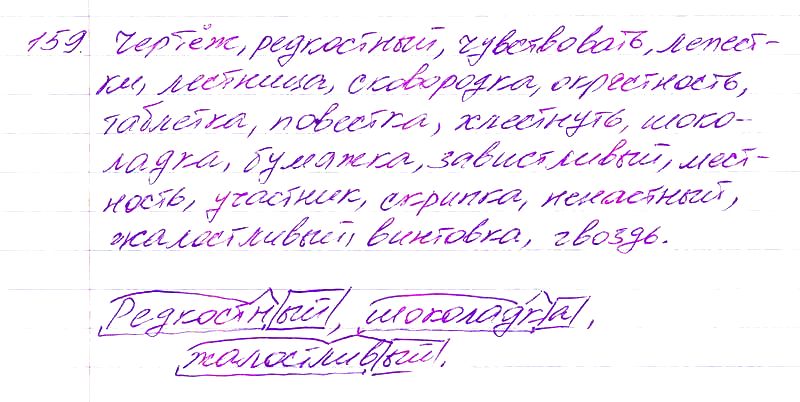 159. Чертёж, редкостный, чувствовать, лепест-
ки, лестница, сковородка, окрестность,
таблетка, повестка, хлестнуть, шоко-
ладка, бумажка, завистливый, мест-
ность, участник, скрипка, ненастный,
жалостливый, винтовка, гвоздь.
Редкостный, шоколадка,
жалостливый.